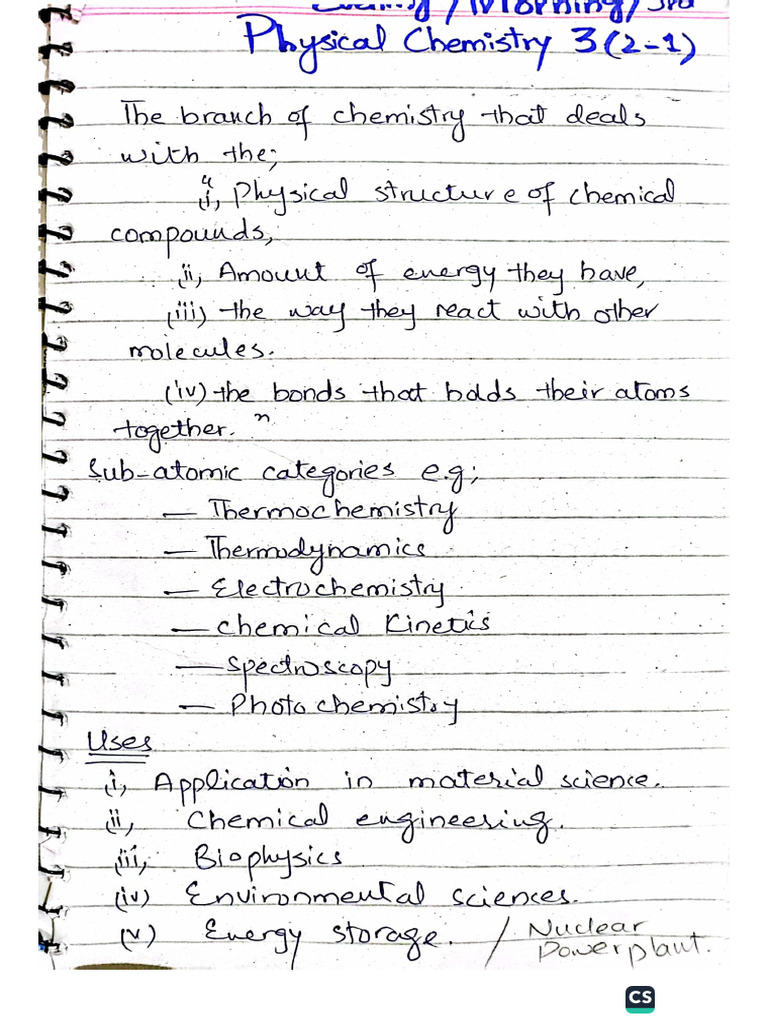 Evening/Morning/3rd
Physical Chemistry 3(2-1)
The branch of chemistry that deals
with the;
"i, Physical structure of chemical
compounds,
ii, Amount of energy they have,
(iii) the way they react with other
molecules.
(iv) the bonds that holds their atoms
together. "
Sub-atomic categories e.g;
— Thermochemistry
— Thermodynamics
— Electrochemistry
— Chemical Kinetics
— Spectroscopy
— Photochemistry
Uses
i, Application in material science.
ii, Chemical engineering.
iii, Biophysics
(iv) Environmental sciences.
(v) Energy storage. / Nuclear
Powerplant.
CS